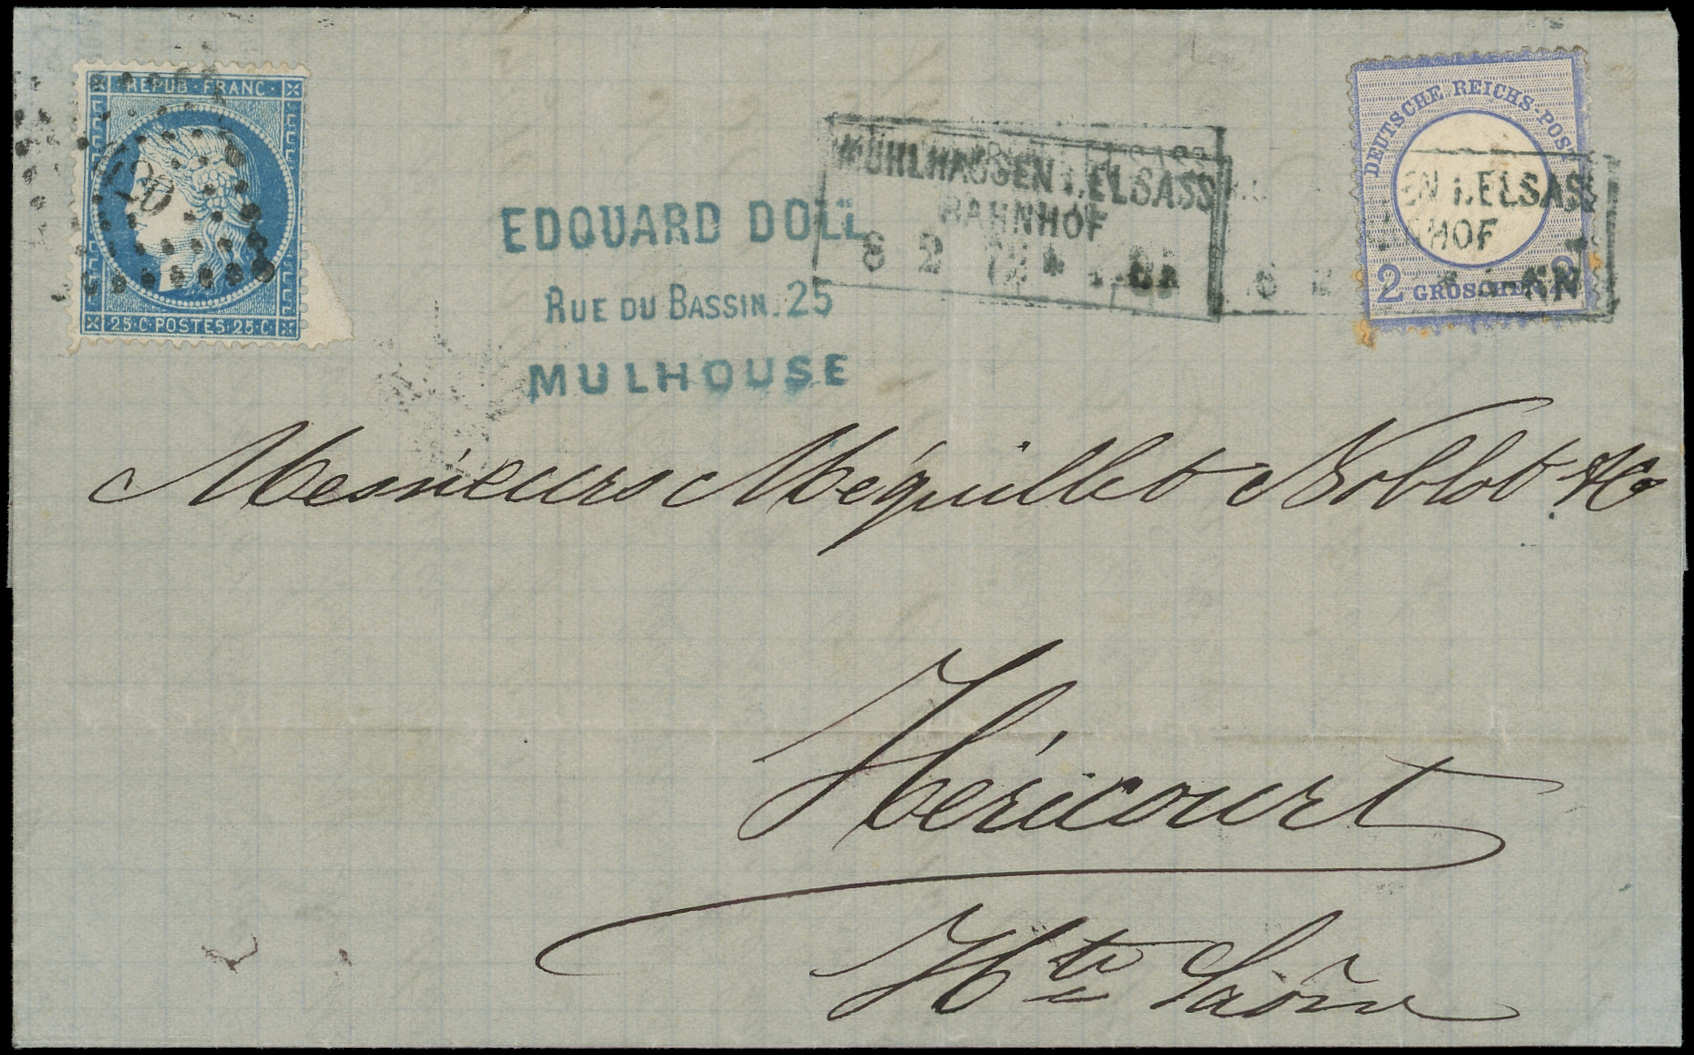 REPUB · FRANC ·
25 · C · POSTES · 25 · C
DEUTSCHE REICHS-POST
2 GROSCHEN 2
EDOUARD DOLL
RUE DU BASSIN. 25
MULHOUSE
MÜHLHAUSEN I. ELSASS
BAHNHOF
8 2
EN I. ELSAS
HOF
Messieurs Méquillet Noblot & Co
Héricourt
Hte Saône